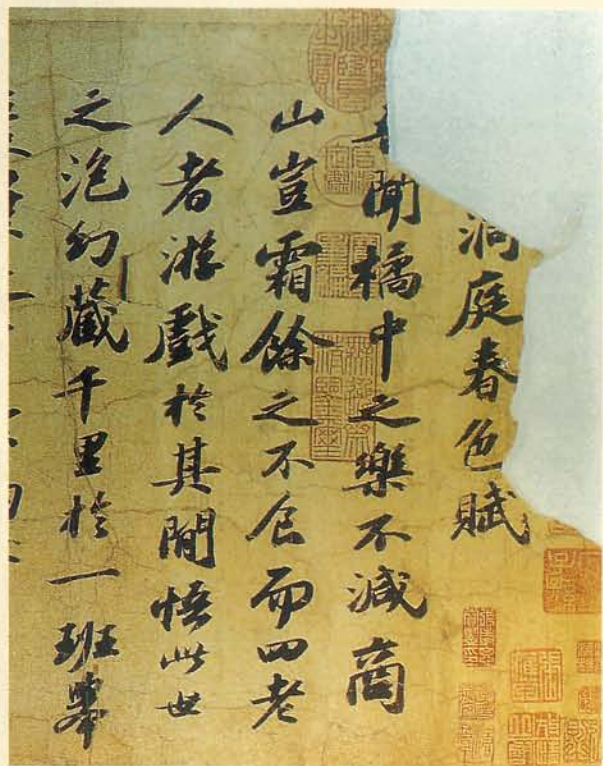 洞庭春色賦
吾聞橘中之樂不減商
山豈霜餘之不食而四老
人者游戲於其間悟此世
之泡幻藏千里於一班舉